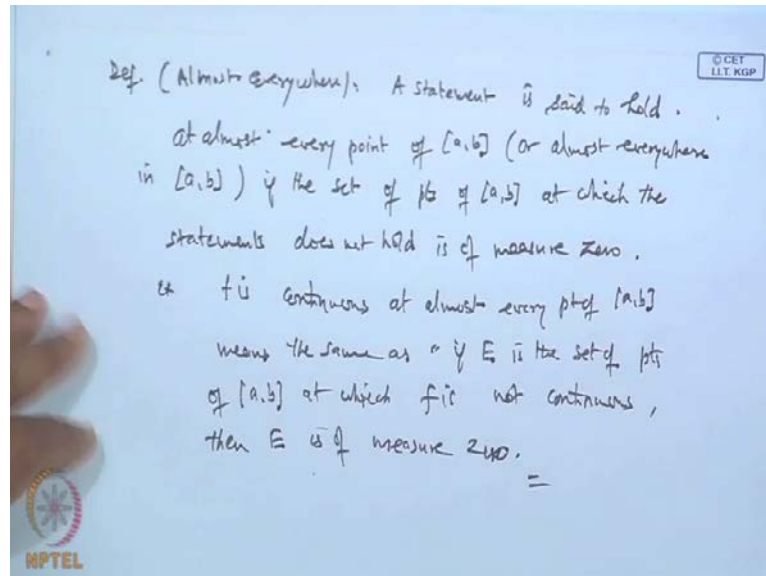 Def. (Almost everywhere): A statement is said to hold.
at almost every point of [a,b] (or almost everywhere
in [a,b]) if the set of pts of [a,b] at which the
statements does not hold is of measure zero.
Ex f is continuous at almost every pt of [a,b]
means the same as " if E is the set of pts
of [a,b] at which f is not continuous,
then E is of measure zero.
© CET
I.I.T. KGP
NPTEL